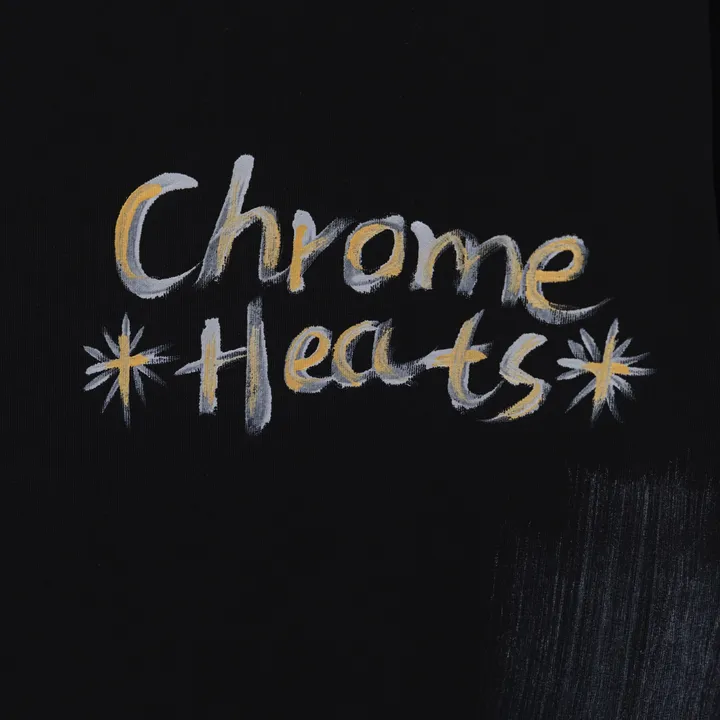 Chrome
Heats